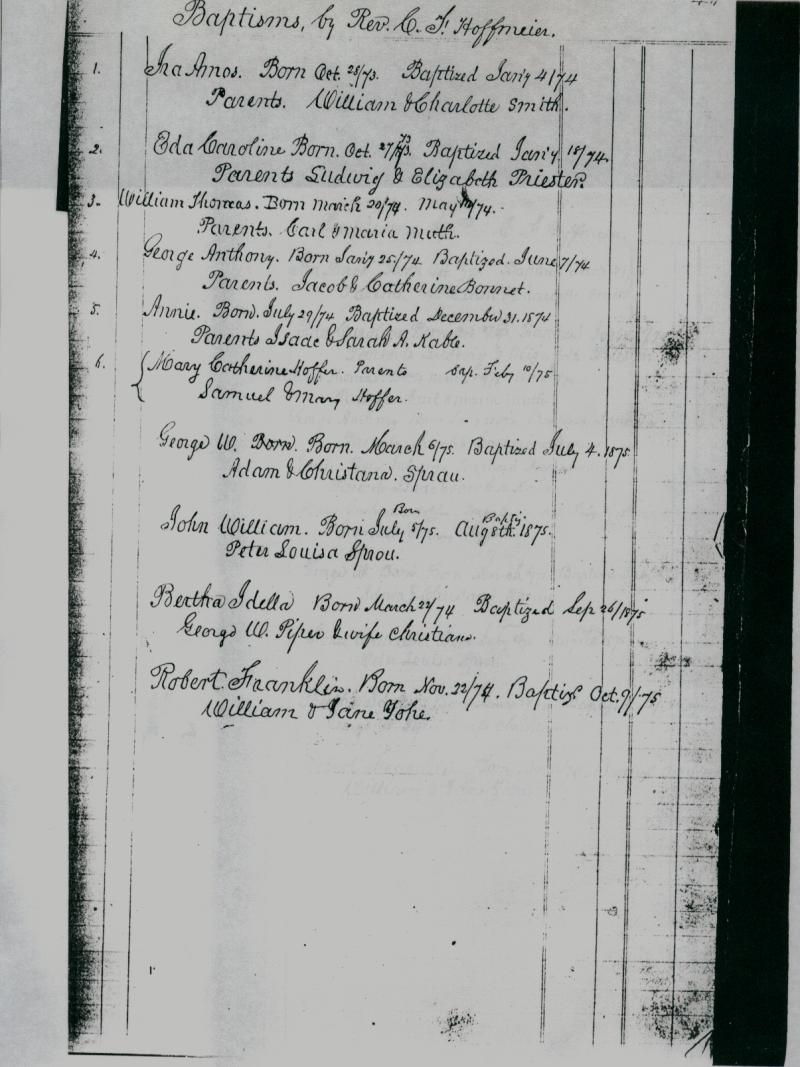 Baptisms, by Rev. C. F. Hoffmeier.
1. Ira Amos. Born Oct. 28/73. Baptized Jan'y 4/74
Parents. William & Charlotte Smith.
2. Eda Caroline Born. Oct. 27/73. Baptized Jan'y 18/74.
Parents Ludwig & Elizabeth Priester.
3. William Thomas. Born March 20/74. May /74.
Parents. Carl & Maria Muth.
4. George Anthony. Born Jan'y 25/74 Baptized. June 7/74
Parents. Jacob & Catherine Bonnet.
5. Annie. Born. July 29/74 Baptized December 31. 1874
Parents Isaac & Sarah A. Kable.
6. Mary Catherine Hoffer. Parents Bap. Feby 10/75
Samuel & Mary Hoffer.
George W. Born. Born. March 6/75. Baptized July 4. 1875
Adam & Christana. Sprau.
Born Bapt
John William. Born July 5/75. Aug 8th. 1875.
Peter Louisa Sprou.
Bertha Idella Born March 22/74 Baptized Sep 26/1875
George W. Piper & wife Christiana.
Robert Franklin. Born Nov. 22/74. Baptiz Oct. 9/-75
William & Jane Yohe.